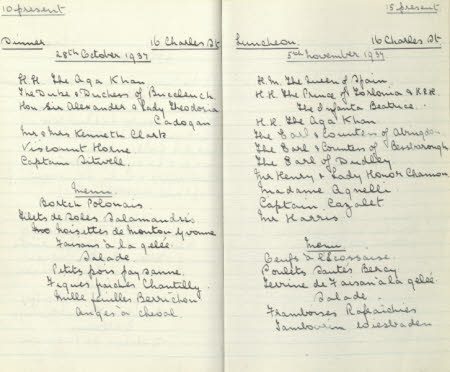 10 present
Dinner 16 Charles St
28th October 1937
H.H. The Aga Khan
The Duke & Duchess of Buccleuch
Hon Sir Alexander & Lady Theodosia
Cadogan
Mr & Mrs Kenneth Clark
Viscount Horne
Captain Sitwell
Menu
Bortch Polonais
Filets de Soles Salamandres
Noisettes de Mouton Yvonne
Faisans à la gelée
Salade
Petits pois paysanne
Figues fraiches Chantilly
Mille feuilles Berrichon
Anges à cheval
15 present
Luncheon 16 Charles St
5th November 1937
H.M. The Queen of Spain
H.H. The Prince of Torlonia & H.R.H.
The Infanta Beatrice
H.H. The Aga Khan
The Earl & Countess of Abingdon
The Earl & Countess of Bessborough
The Earl of Dudley
Mr Henry & Lady Honor Channon
Madame Agnelli
Captain Cazalet
Mr Harris
Menu
Oeufs à l'écossaise
Poulets Sautes Bercy
Terrine de Faisan à la gelée
Salade
Framboises Rafraichies
Tambourin Wiesbaden